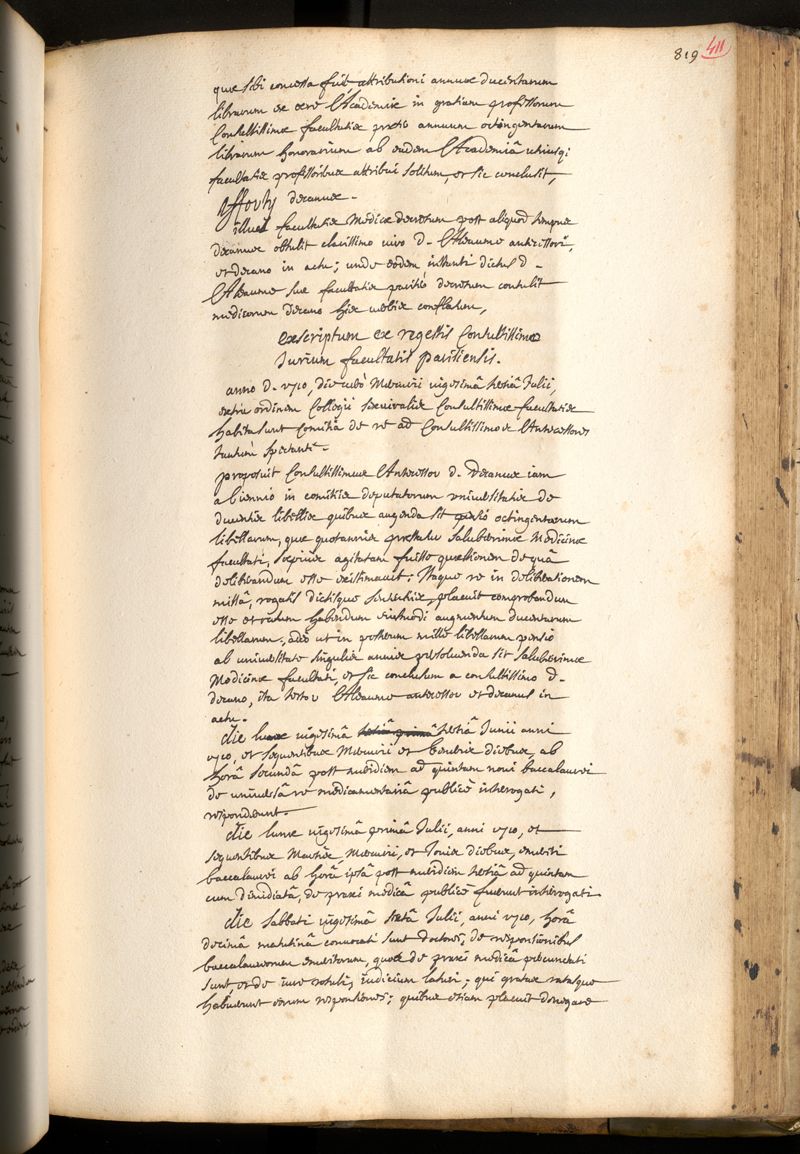 819 411
quæ sibi concessa fuit attributioni annuæ ducentarum
librarum ex ære Academiæ in gratiam professorum
Consultissimæ facultatis præter annuum octingentarum
librarum honorarium ab eadem Academiâ utriusq;
facultatis professoribus attribui solitum, et sic conclusit,
decanus.
illud facultatis Medicæ decretum post aliquod tempus
decanus obtulit clarissimo viro D. Alleaume antecessori,
et decano in actu; unde eodem instanti dictus D.
Alleaume suæ facultatis pariter decretum contulit
medicorum decano his verbis conflatum,
exscriptum ex regestis Consultissimæ
Jurium facultatis parisiensis.
anno D. 1710, die verò Mercurii vigesimâ tertiâ Julii,
extra ordinem Collegii sexviralis Consultissimæ facultatis
habita sunt Comitia de re ad Consultissimos Antecessores
tantùm spectanti.
proposuit Consultissimus Antecessor D. Decanus iam
a biennio in comitiis deputatorum universitatis de
ducentis libellis quibus augenda sit pensio octingentarum
libellarum, quæ quotannis præstatur saluberrimæ Medicinæ
facultati, sæpius agitatam fuisse quæstionem de quâ
deliberandum esse existimavit; Itaque re in deliberationem
missâ, rogatis dictisque sententiis, placuit comprobandum
esse et ratum habendum eiusmodi augmentum ducentarum
libellarum, adeò ut in posterum mille libellarum pensio
ab universitate singulis annis persolvenda sit saluberrimæ
Medicinæ facultati, et sic conclusum a consultissimo D.
decano, ita testor Alleaume antecessor et decanus in
actu.
die lunæ vigesimâ tertiâ Junii anni
1710, et sequentibus Mercurii et Veneris diebus, ab
horâ secundâ post meridiem ad quintam novi baccalaurei
de universâ re medicamentariâ publicè interrogati,
responderunt.
die lunæ vigesimâ primâ Julii, anni 1710, et
sequentibus Martis, Mercurii, et Jovis diebus, emeriti
baccalaurei ab horâ ipsâ post meridiem tertiâ ad quintam
cum dimidiatâ, de praxi medicâ publicè fuerunt interrogati
die sabbati vigesimâ sextâ Julii, anni 1710, horâ
decimâ matutinâ convocati sunt doctores, de responsionibus
baccalaureorum emeritorum, qui de praxi medicâ percunctati
sunt, et de iure rotuli, iudicium laturi; qui gratas ratasque
habuerunt eorum responsiones; quibus etiam placuit denegare